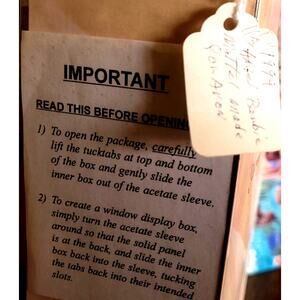 IMPORTANT
READ THIS BEFORE OPENING
1) To open the package, carefully
lift the tucktabs at top and bottom
of the box and gently slide the
inner box out of the acetate sleeve.
2) To create a window display box,
simply turn the acetate sleeve
around so that the solid panel
is at the back, and slide the inner
box back into the sleeve, tucking
the tabs back into their intended
slots.
1994
Barbie
Mattel made